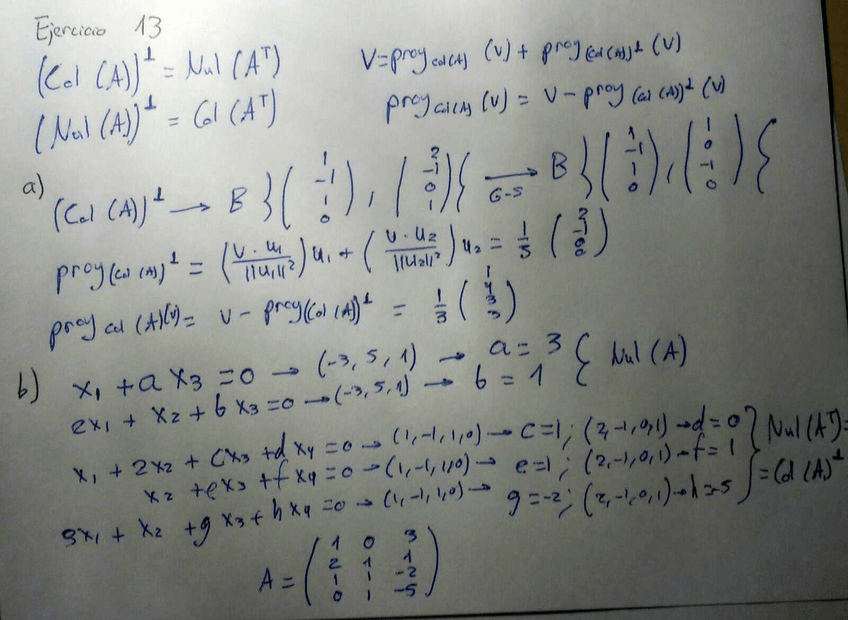 Ejercicio 13
(Col (A))^⊥ = Nul (A^T)
(Nul (A))^⊥ = Col (A^T)
V = proy_{Col(A)} (v) + proy_{(Col(A))^⊥} (v)
proy_{Col(A)} (v) = v - proy_{(Col(A))^⊥} (v)
a) (Col (A))^⊥ → B { (1, -1, 1, 0), (2, -1, 0, 1) } →_{G-S} B { (1, -1, 1, 0), (1, 0, -1, ) }
proy_{(Col(A))^⊥} = (v · u_1 / ||u_1||^2) u_1 + (v · u_2 / ||u_2||^2) u_2 = 1/3 (2, -1, 0, 0)
proy_{Col(A)}(v) = v - proy_{(Col(A))^⊥} = 1/3 (1, 4, 3, 3)
b) x_1 + a x_3 = 0 → (-3, 5, 1) → a = 3 } Nul (A)
2x_1 + x_2 + b x_3 = 0 → (-3, 5, 1) → b = 1
x_1 + 2x_2 + c x_3 + d x_4 = 0 → (1, -1, 1, 0) → c = 1; (2, -1, 0, 1) → d = 0 } Nul (A^T) =
x_2 + e x_3 + f x_4 = 0 → (1, -1, 1, 0) → e = 1; (2, -1, 0, 1) → f = 1
3x_1 + x_2 + g x_3 + h x_4 = 0 → (1, -1, 1, 0) → g = -2; (2, -1, 0, 1) → h = -5 = Col (A)^⊥
A = ( 1 0 3
2 1 1
1 1 -2
0 1 -5 )